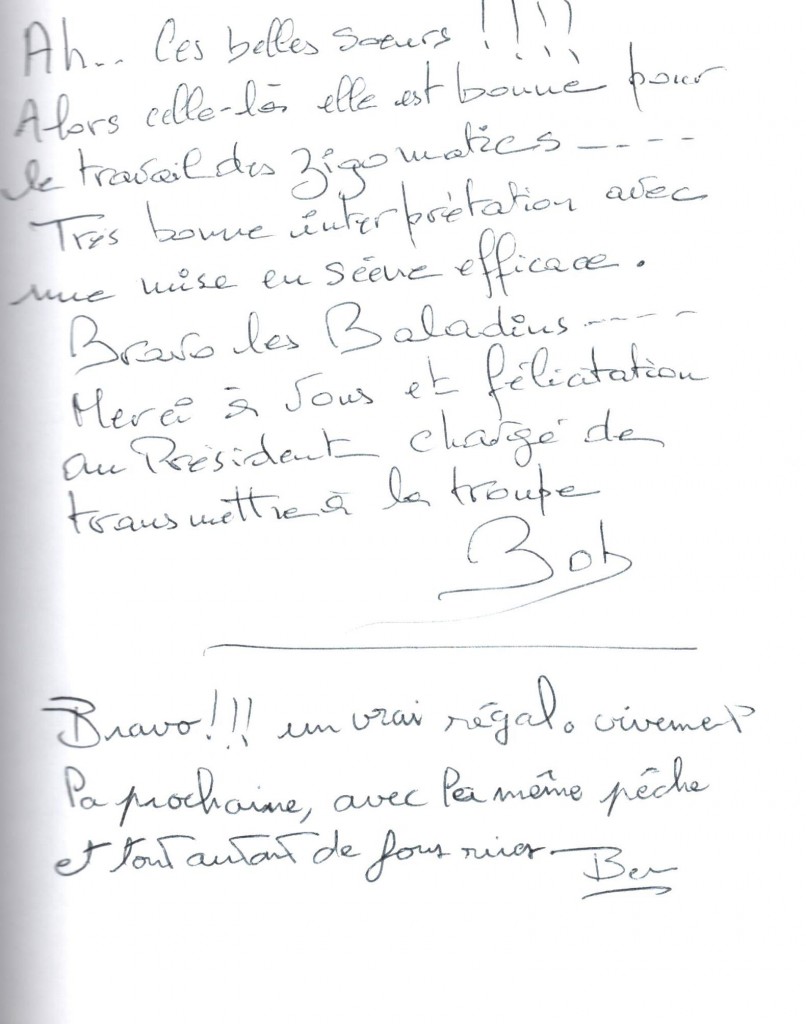 Ah... Ces belles sœurs !!!!
Alors celle-là elle est bonne pour
le travail des zigomatics ----
Très bonne interprétation avec
une mise en scène efficace.
Bravo les Baladins ----
Merci à Vous et félicitation
au Président chargé de
transmettre à la troupe
Bob
Bravo!!! un vrai régal. vivement
la prochaine, avec la même pêche
et tout autant de fous rires
Ben